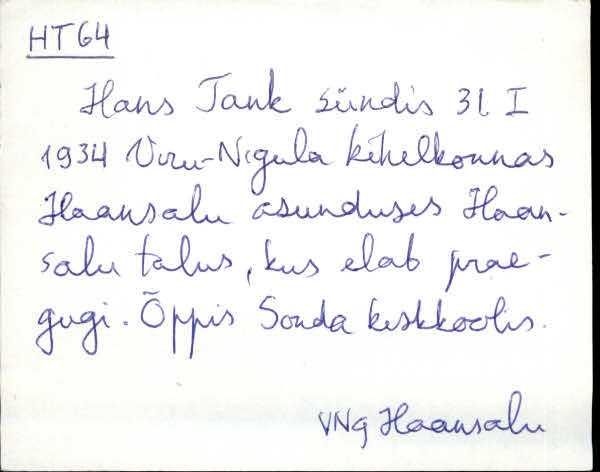 HT64
Hans Tank sündis 31. I
1934 Viru-Nigula kihelkonnas
Haansalu asunduses Haan-
salu talus, kus elab prae-
gugi. Õppis Sonda keskkoolis.
VNg Haansalu